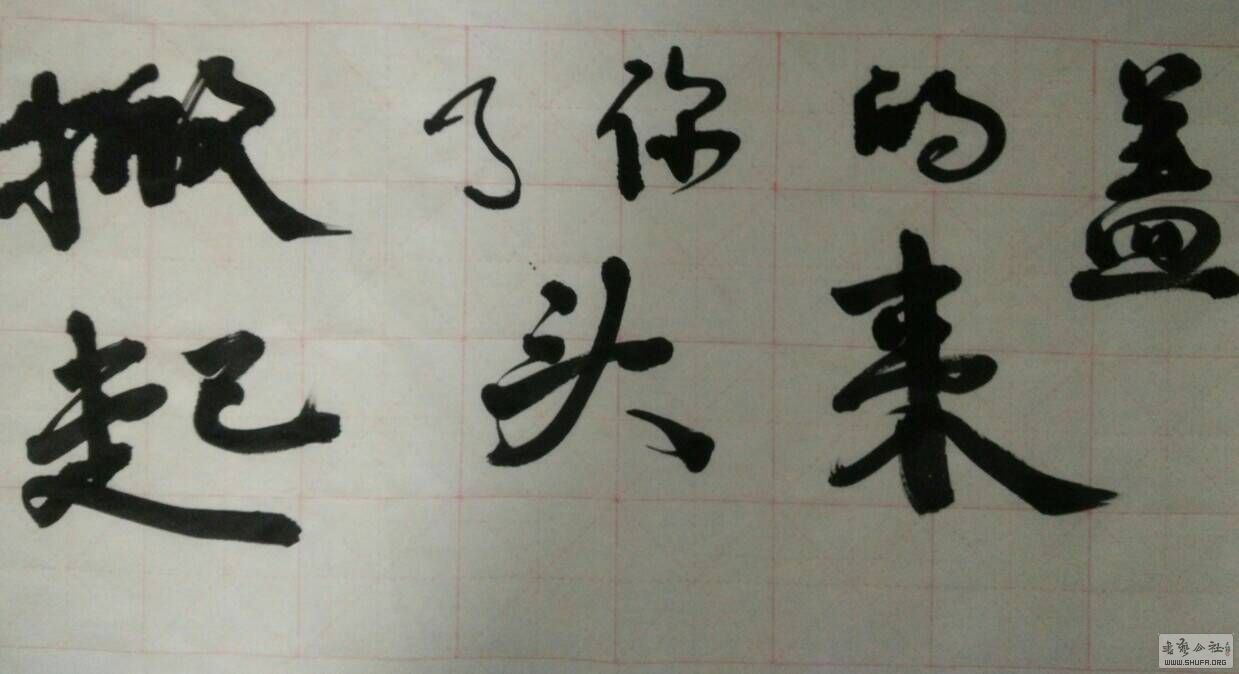 掀了你的盖
起头来
书艺公社
WWW.SHUFA.ORG